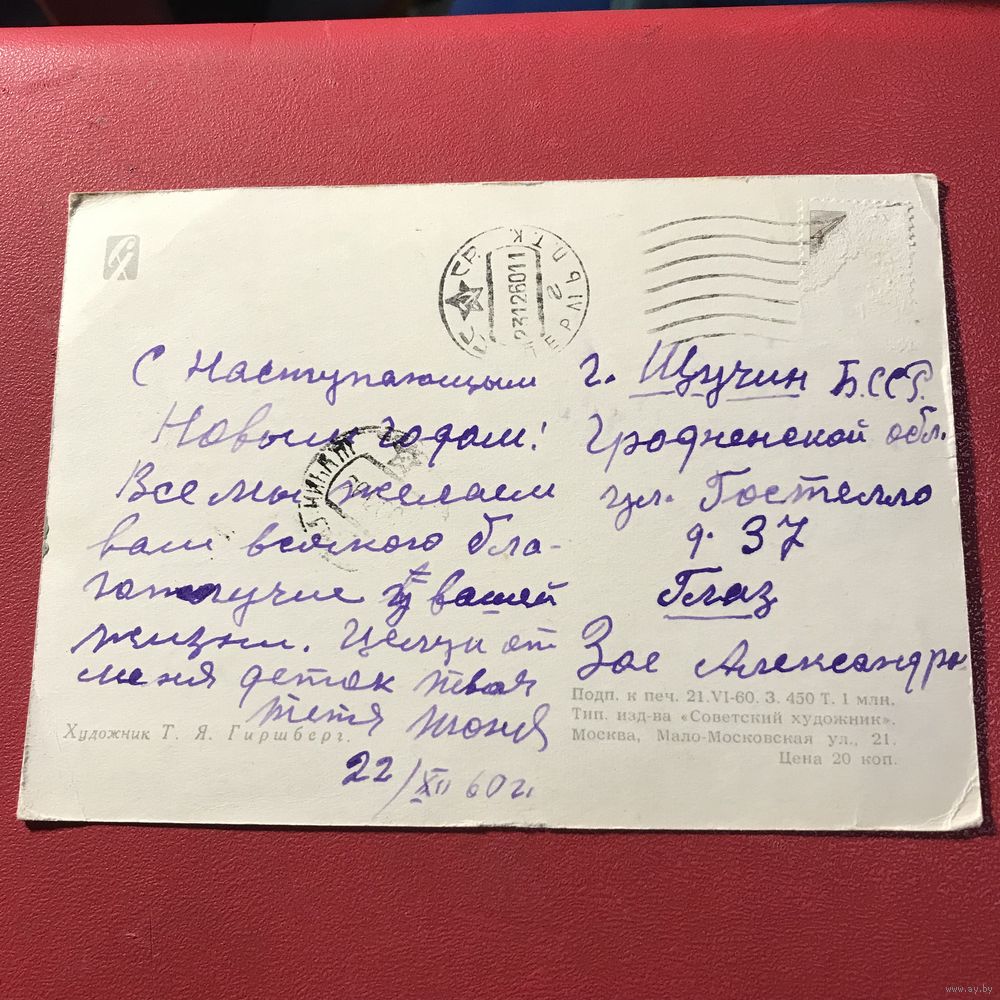 С Наступающим
Новым годом!
Все мы желаем
вам всякого бла-
гополучие в вашей
жизни. Целуи от
меня деток твоя
тетя Тоня
22/XII 60 г.
г. Щучин Б.ССР.
Гродненской обл.
ул. Гостелло
д. 37
Глаз
Зое Александр
СССР
23126011
П.Т.К
Художник Т. Я. Гиршберг.
Подп. к печ. 21.VI-60. З. 450 Т. 1 млн.
Тип. изд-ва «Советский художник».
Москва, Мало-Московская ул., 21.
Цена 20 коп.
www.ay.by